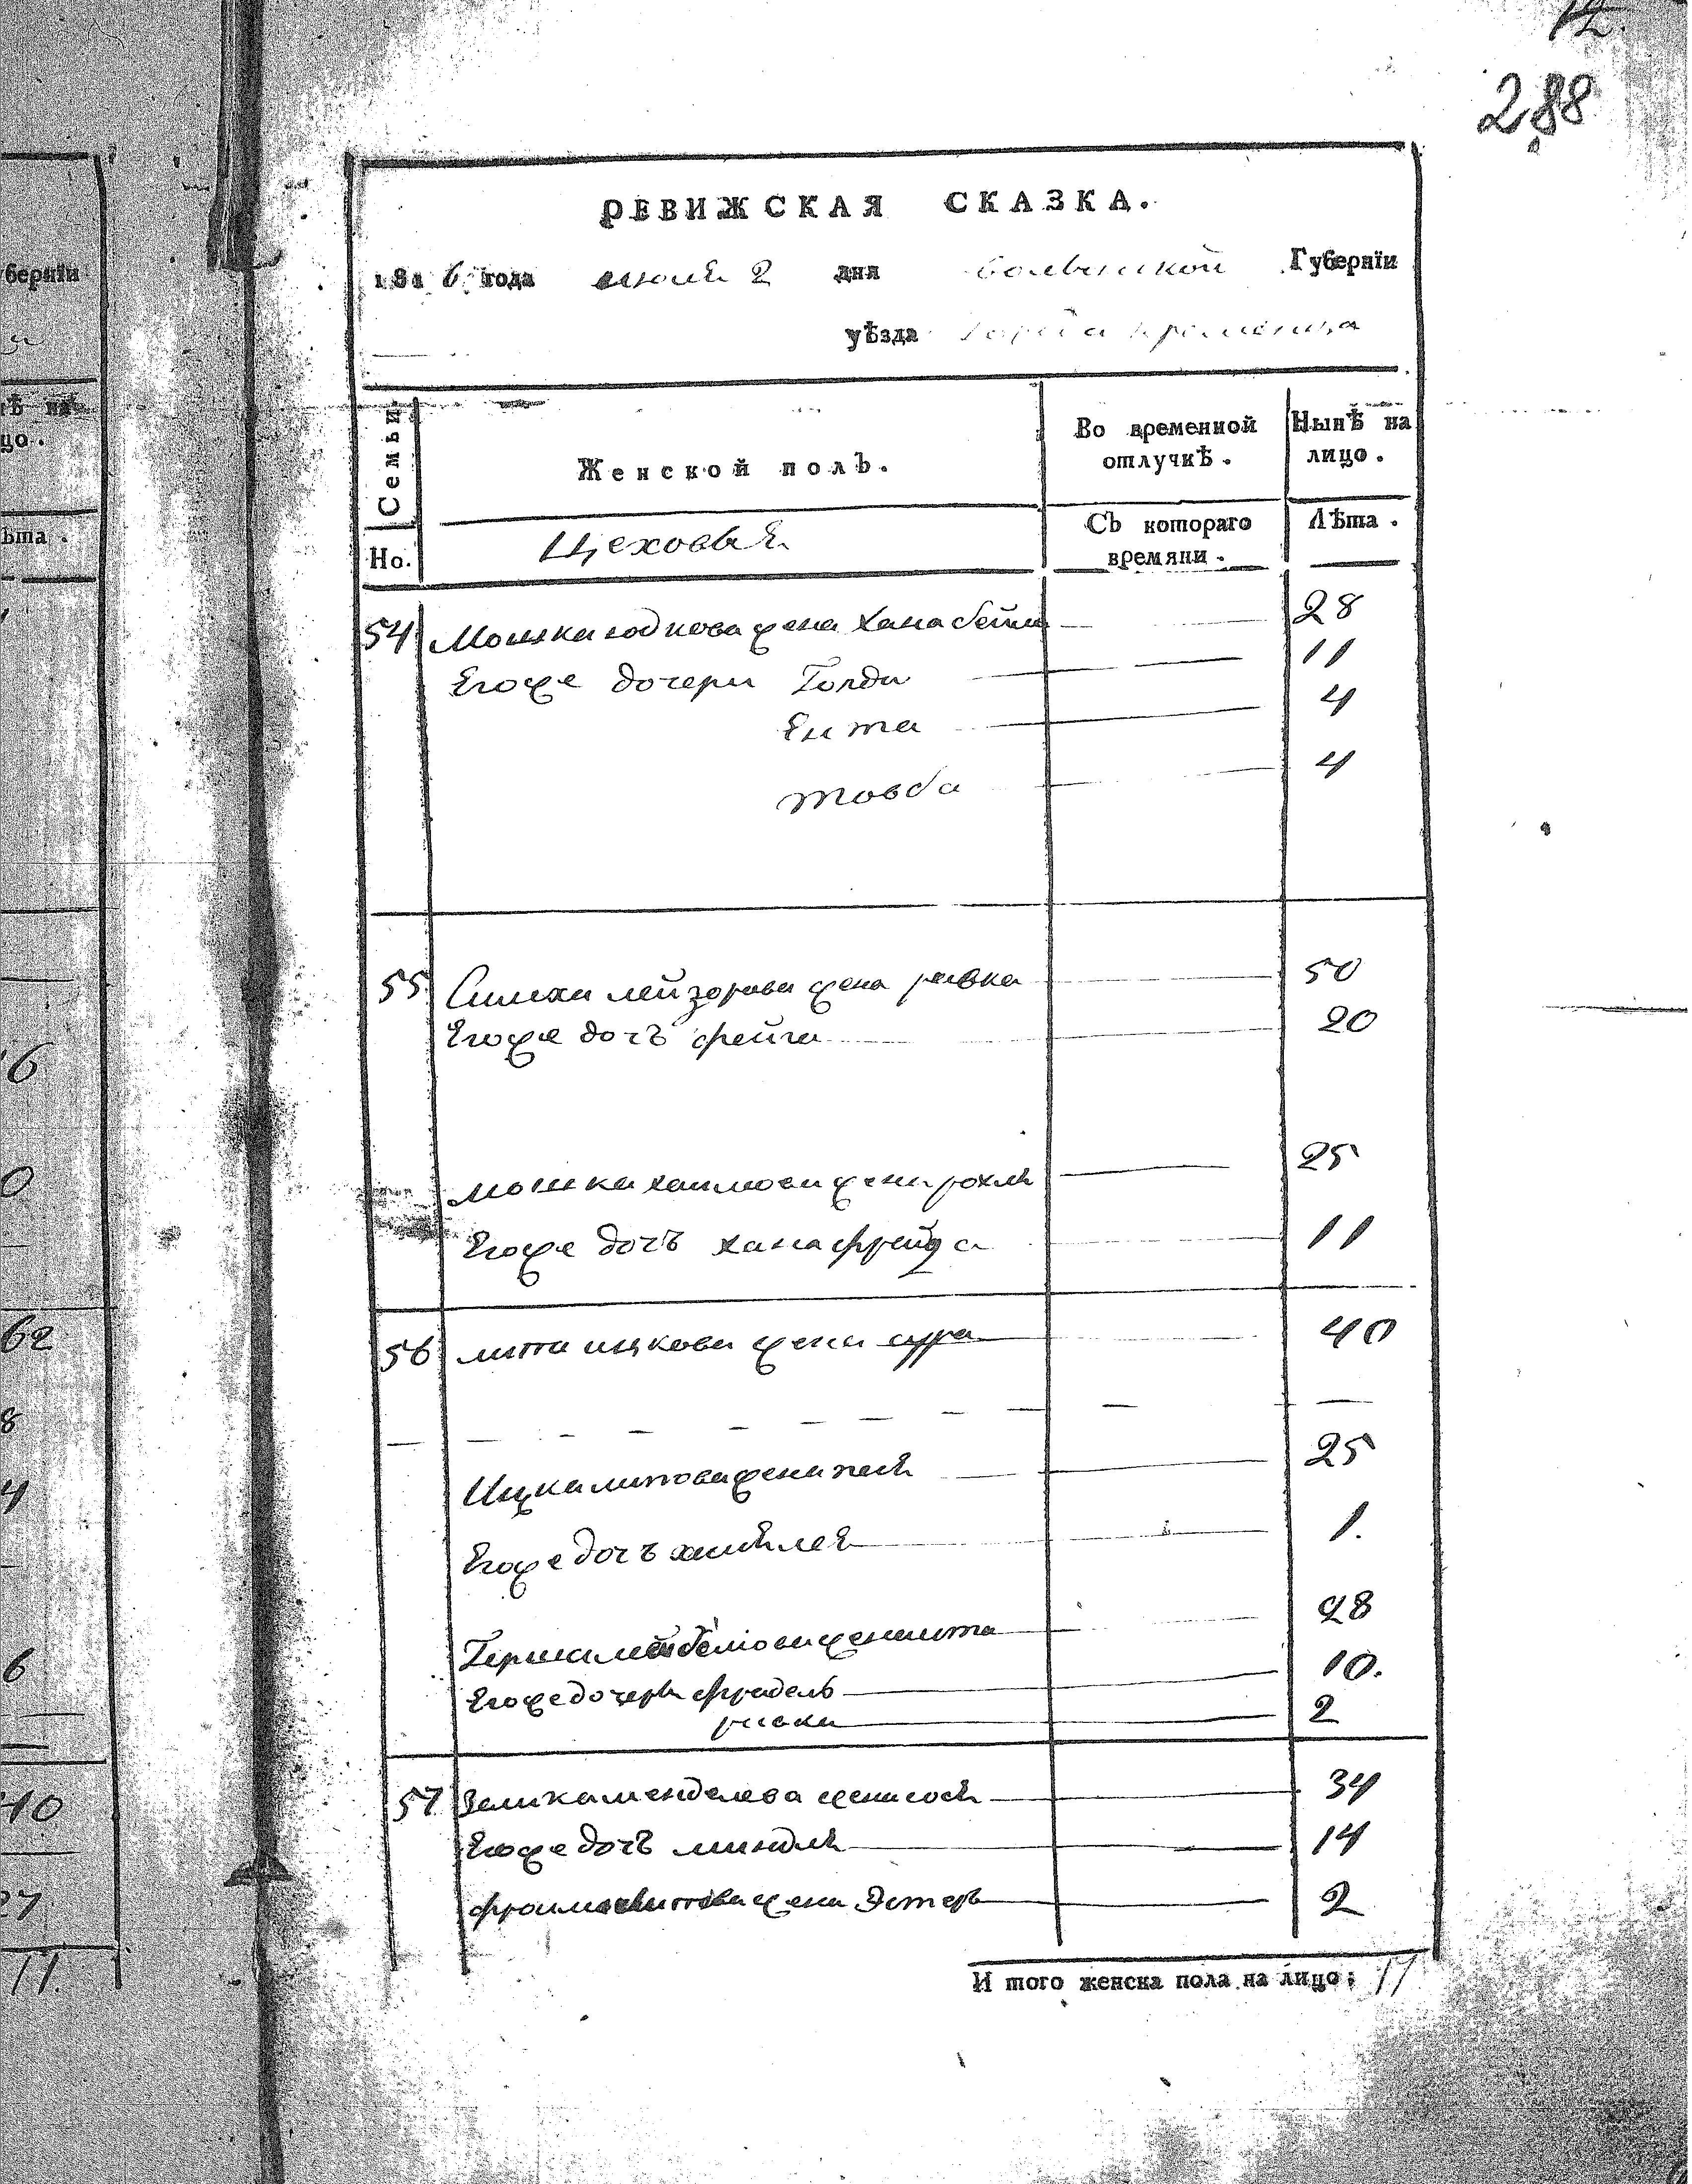 12.
288
РЕВИЖСКАЯ СКАЗКА.
1816 года июля 2 дня волынской Губернїи
уѣзда города кременца
Семьи
Женской полъ.
Во временной отлучкѣ.
Нынѣ на лицо.
Но.
Цеховыя
Съ котораго времяни.
Лѣта.
54 Мошка юдкова жена Хана бейла 28
Его же дочери Голда 11
Ента 4
товба 4
55 Симха лейзорова жена ривка 50
Его же дочъ фейга 20
мошка хаимова жена рохля 25
Его же дочъ хана фрейда 11
56 липа ицкова жена сура 40
Ицка липова жена песя 25
Его же дочъ 1.
Герша жена 28
Его же дочери фрадель 10.
ривка 2
57 Зелика менделева жена сося 34
Его же дочъ миндля 14
фроима жена Эстеръ 2
И того женска пола на лицо: 17
бернїи
ѣ на
цо.
ѣта.
6
0
62
8
4
6
40
27
11.